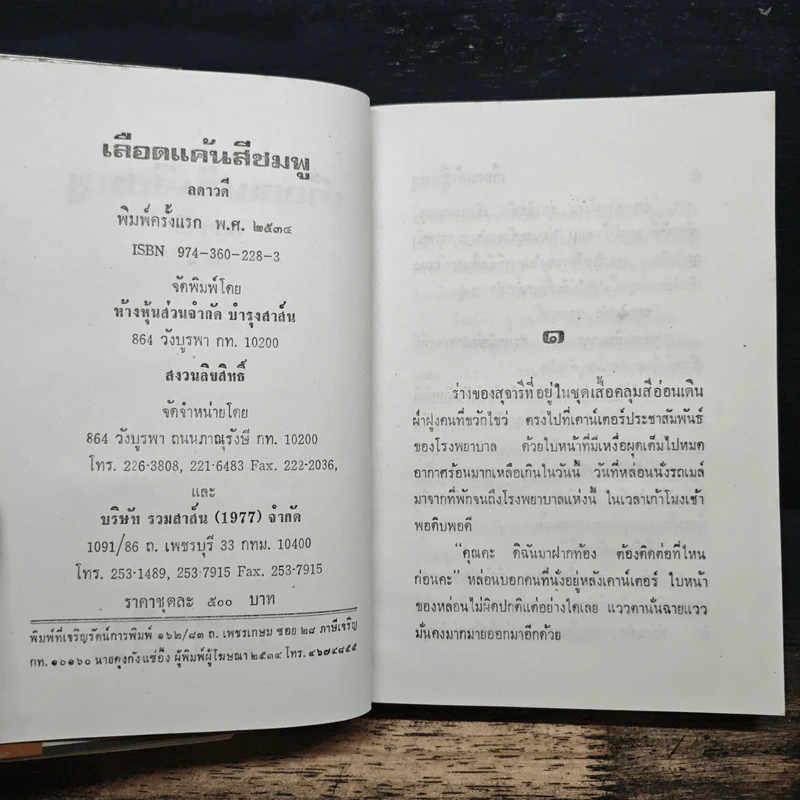 เลือดแค้นสีชมพู
ลดาวดี
พิมพ์ครั้งแรก พ.ศ. ๒๕๓๔
ISBN 974-360-228-3
จัดพิมพ์โดย
ห้างหุ้นส่วนจำกัด บำรุงสาส์น
864 วังบูรพา กท. 10200
สงวนลิขสิทธิ์
จัดจำหน่ายโดย
864 วังบูรพา ถนนภาณุรังษี กท. 10200
โทร. 226-3808, 221-6483 Fax. 222-2036,
และ
บริษัท รวมสาส์น (1977) จำกัด
1091/86 ถ. เพชรบุรี 33 กทม. 10400
โทร. 253-1489, 253-7915 Fax. 253-7915
ราคาชุดละ ๕๐๐ บาท
พิมพ์ที่เจริญรัตน์การพิมพ์ ๑๖๒/๘๓ ถ. เพชรเกษม ซอย ๒๘ ภาษีเจริญ
กท. ๑๐๑๖๐ นายคุงกัง แซ่อึ้ง ผู้พิมพ์ผู้โฆษณา ๒๕๓๔ โทร. ๔๖๗๔๘๕๕
๑
ร่างของสุจารีที่อยู่ในชุดเสื้อคลุมสีอ่อนเดิน
ผ่าฝูงคนที่ขวักไขว่ ตรงไปที่เคาน์เตอร์ประชาสัมพันธ์
ของโรงพยาบาล ด้วยใบหน้าที่มีเหงื่อผุดเต็มไปหมด
อากาศร้อนมากเหลือเกินในวันนี้ วันที่หล่อนนั่งรถเมล์
มาจากที่พักจนถึงโรงพยาบาลแห่งนี้ ในเวลาเก้าโมงเช้า
พอดิบพอดี
“คุณคะ ดิฉันมาฝากท้อง ต้องติดต่อที่ไหน
ก่อนคะ” หล่อนบอกคนที่นั่งอยู่หลังเคาน์เตอร์ ใบหน้า
ของหล่อนไม่ผิดปกติแต่อย่างใดเลย แววตานั่นฉายแวว
มั่นคงมากมายออกมาอีกด้วย